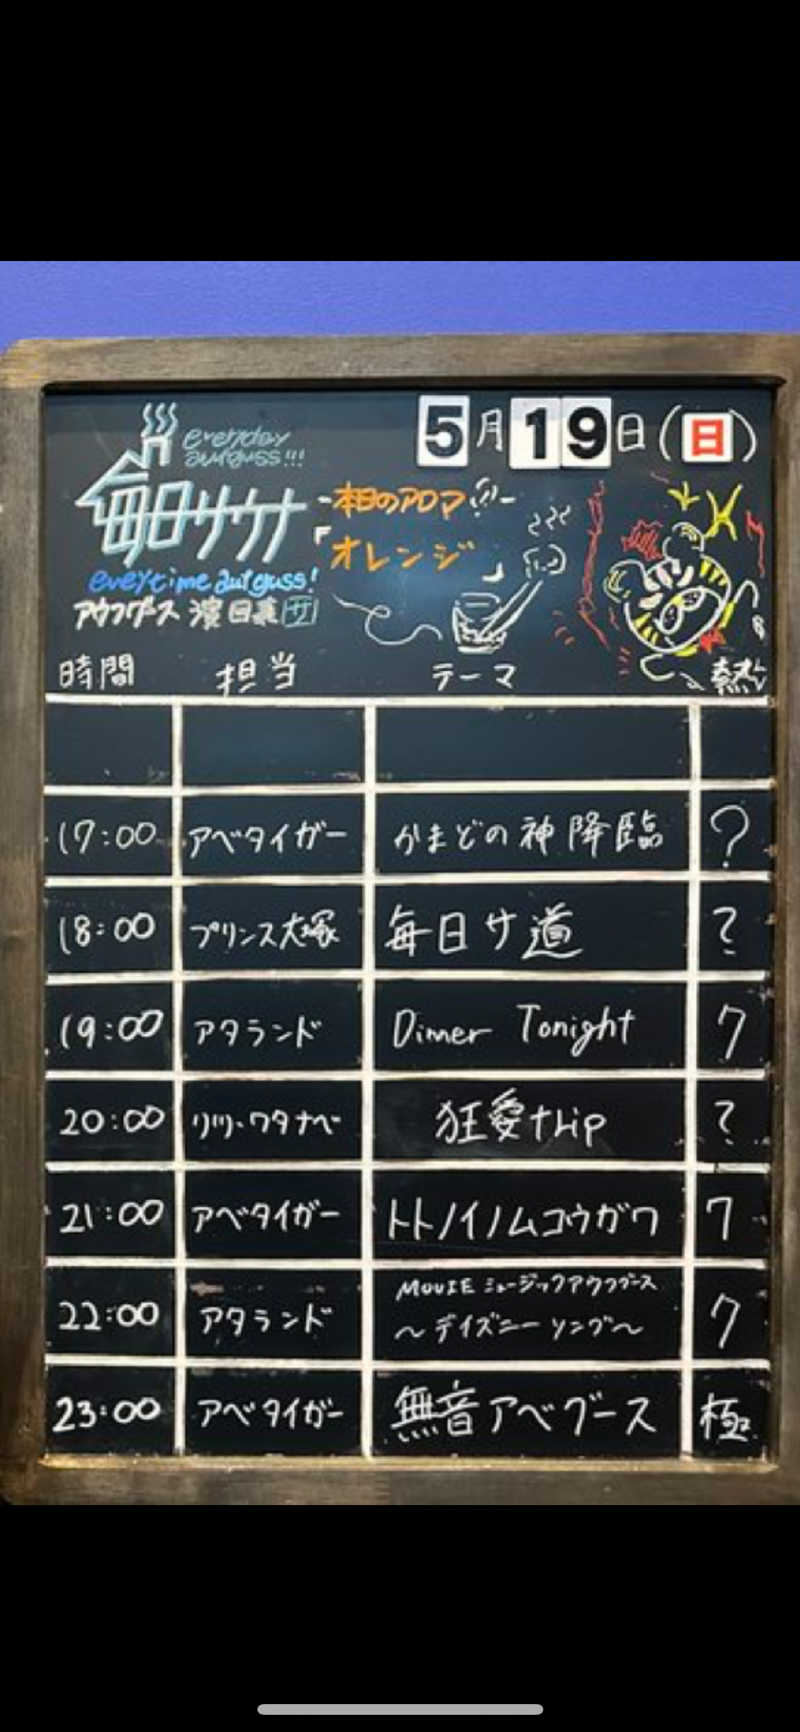 everyday
aufguss!!!
5月19日(日)
毎日サウナ
-本日のアロマ-
オレンジ
everytime aufguss!
アウフグース
時間 担当 テーマ 熱
17:00 アベタイガー かまどの神降臨 ?
18:00 プリンス大塚 毎日サ道 ?
19:00 アタランド Dinner Tonight 7
20:00 リリー・ワタナベ 狂愛trip ?
21:00 アベタイガー トトノイノムコウガワ 7
22:00 アタランド MOVIE ミュージックアウフグース
〜ディズニーソング〜 7
23:00 アベタイガー 無音アベグース 極